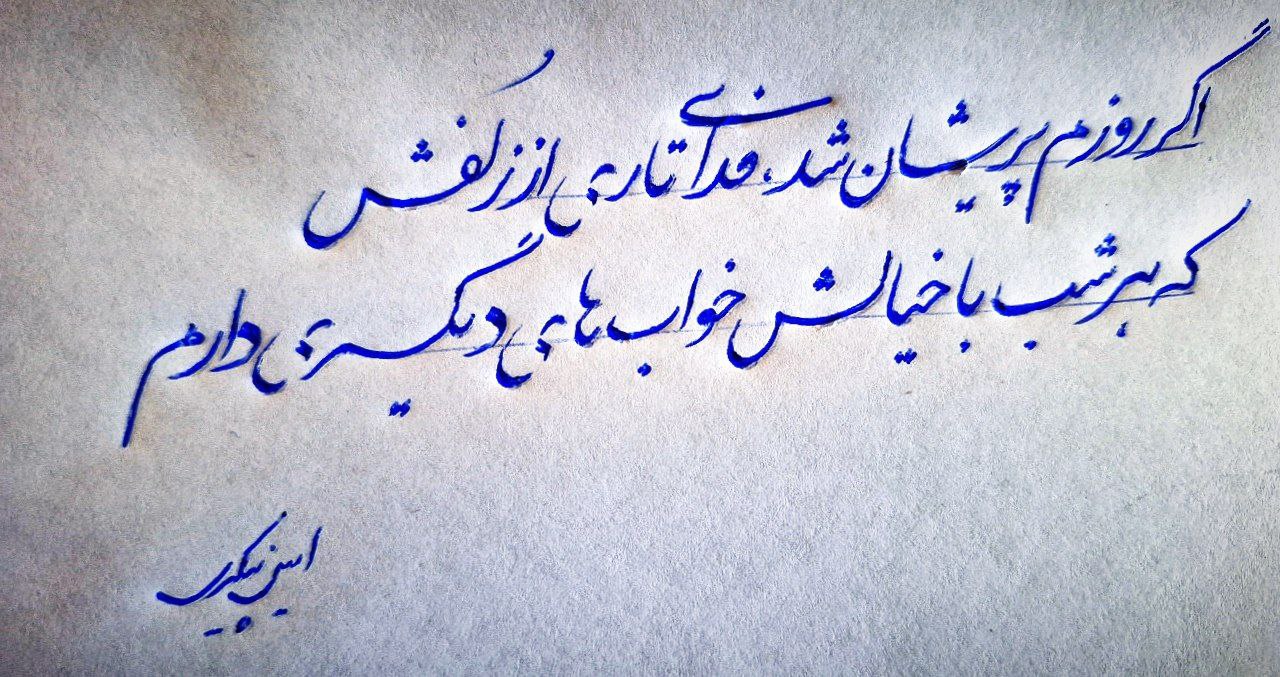 اگر روزم پریشان شد، فدای تاری از زُلفش
که هر شب با خیالش خواب های دیگری دارم